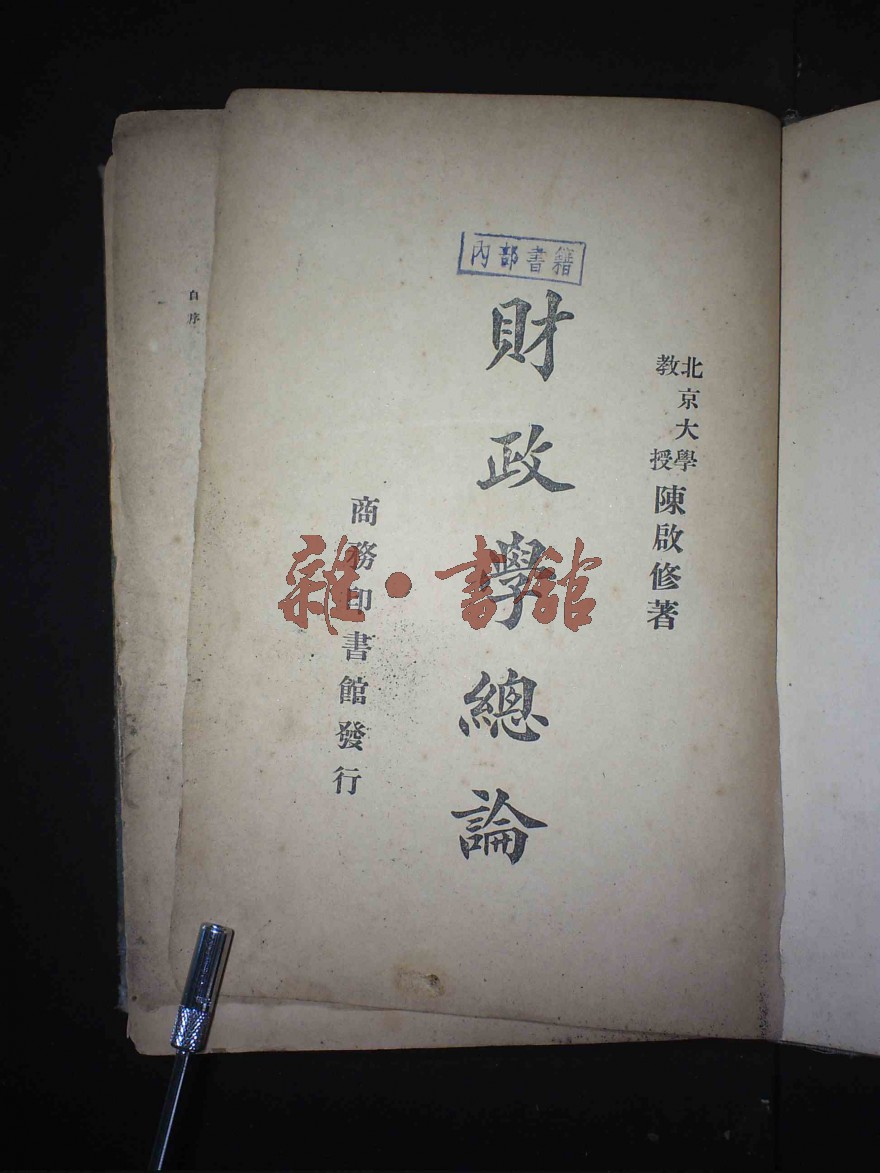 內部書籍
北京大學
教授
陳啟修著
財政學總論
商務印書館發行
自序
雜·書館